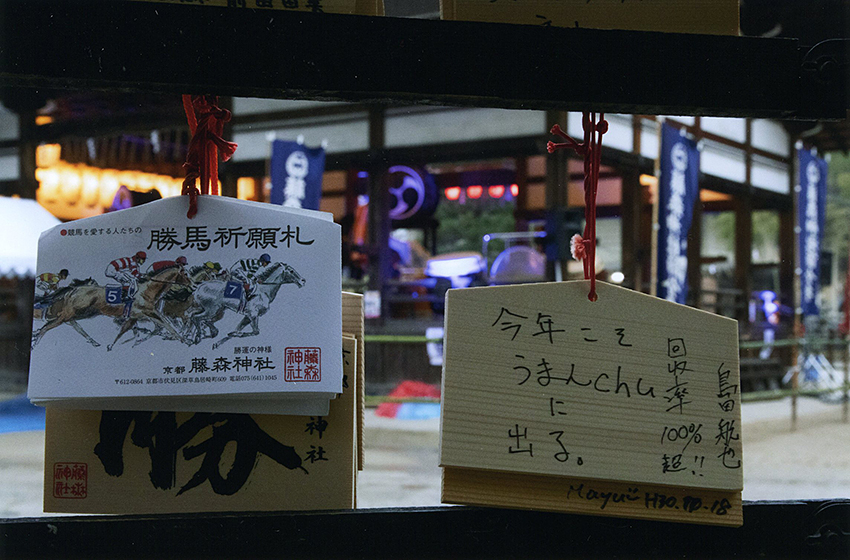 ●競馬を愛する人たちの
勝馬祈願札
5
7
勝運の神様
京都 藤森神社
藤森
神社
〒612-0864 京都市伏見区深草鳥居崎町609 電話075(641)1045
勝
神社
藤森
神社
今年こそ
うまんchu
に
出る。
回収率
100%
超!!
島田 航也
Mayu H30.10.18